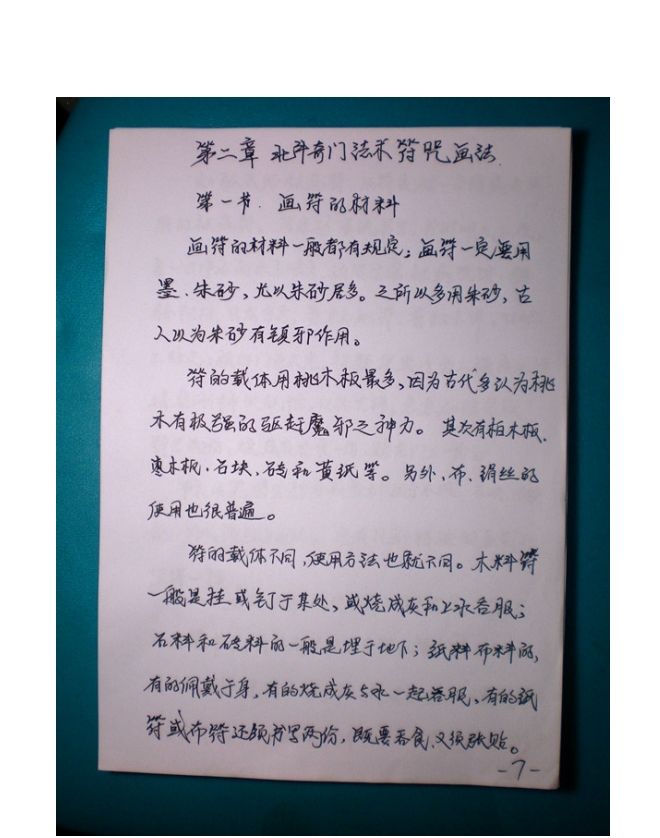 第二章 北斗奇门法术符咒画法
第一节. 画符的材料
画符的材料一般都有规定，画符一定要用
墨、朱砂，尤以朱砂居多。之所以多用朱砂，古
人以为朱砂有镇邪作用。
符的载体用桃木板最多，因为古代多认为桃
木有极强的驱赶魔邪之神力。其次有柏木板、
枣木板、石块、砖和黄纸等。另外，布、绢丝的
使用也很普遍。
符的载体不同，使用方法也就不同。木料符
一般是挂或钉于某处，或烧成灰和上水吞服；
石料和砖料的一般是埋于地下；纸料布料的，
有的佩戴于身，有的烧成灰与水一起吞服，有的纸
符或布符还须书写两份，既要吞食，又须张贴。
-7-